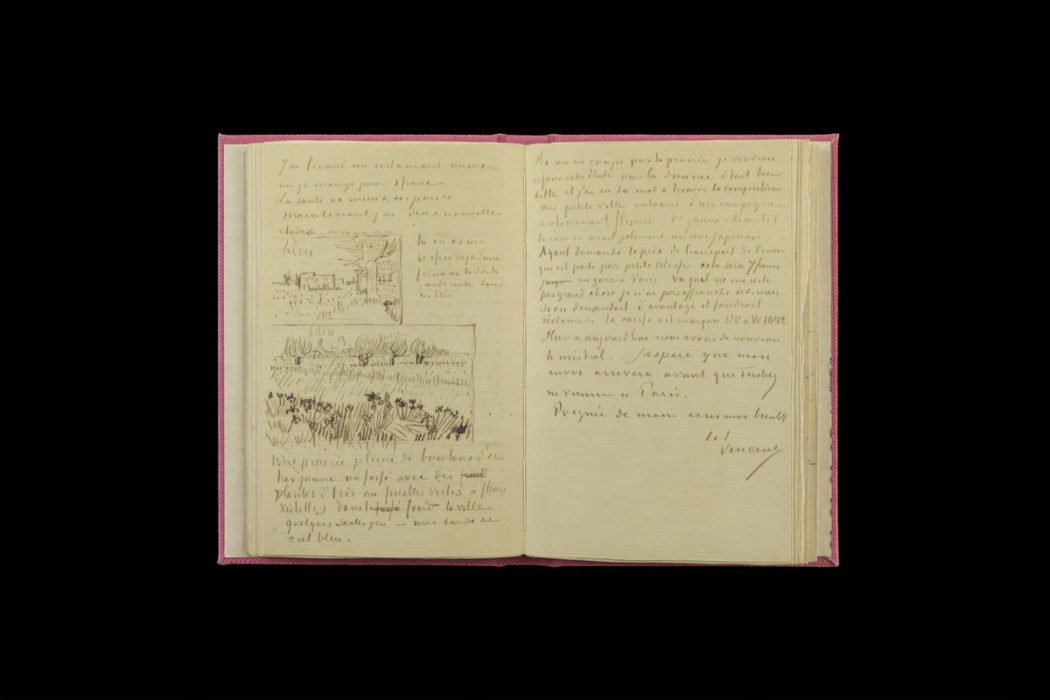 J'ai trouvé un restaurant mieux
où je mange pour 1 franc.
La santé va mieux ces jours ci
maintenant j'ai deux nouvelles
études comme ceci
bleu
tu en as un
dessin déjà d'une
ferme au bord de la
grande route dans
les blés
bleu
Une prairie pleine de boutons d'or
très jaune un fossé avec des
plantes d'iris aux feuilles vertes à fleurs
violettes dans le fond la ville
quelques saules gris – une bande de
ciel bleu.
Si on ne coupe pas la prairie je voudrais
refaire cette étude car la donnée était bien
belle et j'ai eu du mal à trouver la composition
Une petite ville entourée d'une campagne
entièrement fleurie de jaune et de violet
tu sais ce serait joliment un rêve japonais.
Ayant demandé le prix de transport de l'envoi
qui est parti par petite vitesse cela sera 7 francs
en gare à Paris Vu qu'il ne me reste
pas grand chose je n'ai pas affranchi ici. mais
si on demandait d'avantage il faudrait
réclamer. la caisse est marquée UV & W 1042
Hier & aujourd'hui nous avons de nouveau
le mistral. J'espère que mon
envoi arrivera avant que Tersteeg
ne vienne à Paris.
Poignée de main écris moi bientôt
t. à t.
Vincent